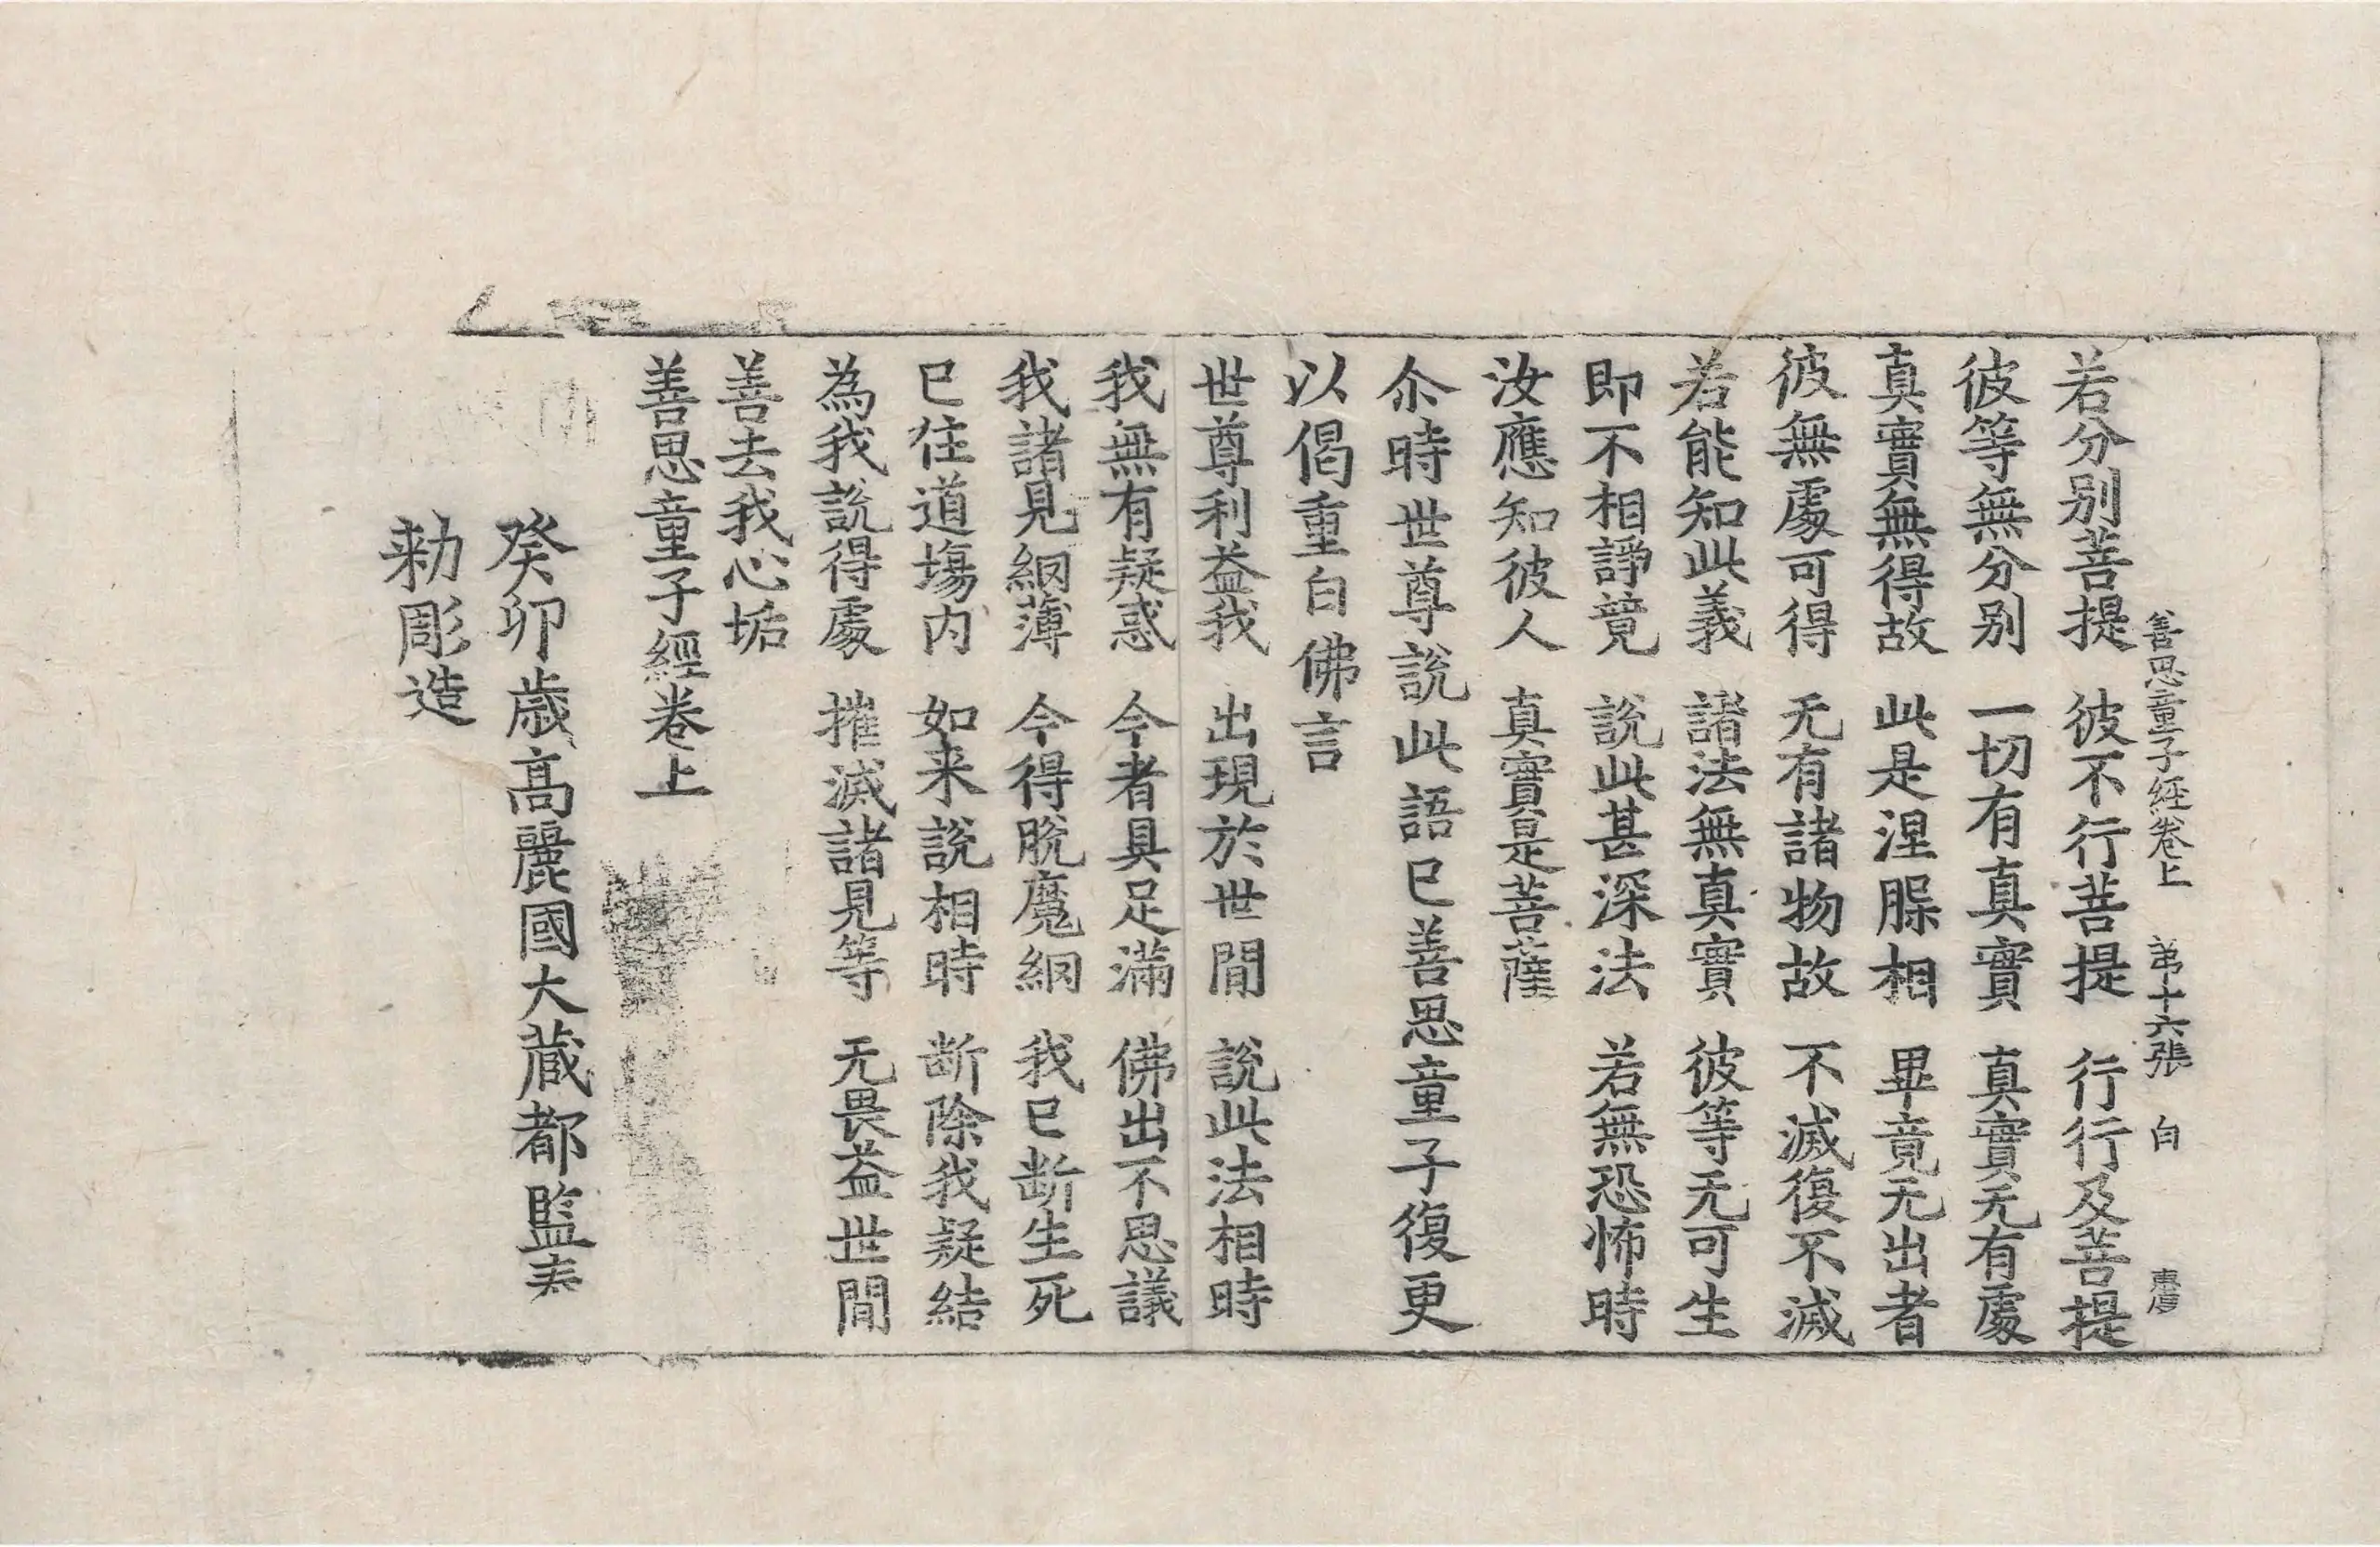 善思童子經卷上 弟十六張 白
若分別菩提 彼不行菩提 行行及菩提
彼等無分別 一切有真實 真實无有處
真實無得故 此是涅槃相 畢竟无出者
彼無處可得 无有諸物故 不滅復不滅
若能知此義 諸法無真實 彼等无可生
即不相諍競 說此甚深法 若無恐怖時
汝應知彼人 真實是菩薩
尒時世尊說此語已善思童子復更
以偈重白佛言
世尊利益我 出現於世間 說此法相時
我無有疑惑 今者具足滿 佛出不思議
我諸見網薄 今得脫魔網 我已断生死
已住道場內 如来說相時 断除我疑結
為我說得處 摧滅諸見等 无畏益世間
善去我心垢
善思童子經卷上
癸卯歲高麗國大藏都監奉
勑彫造